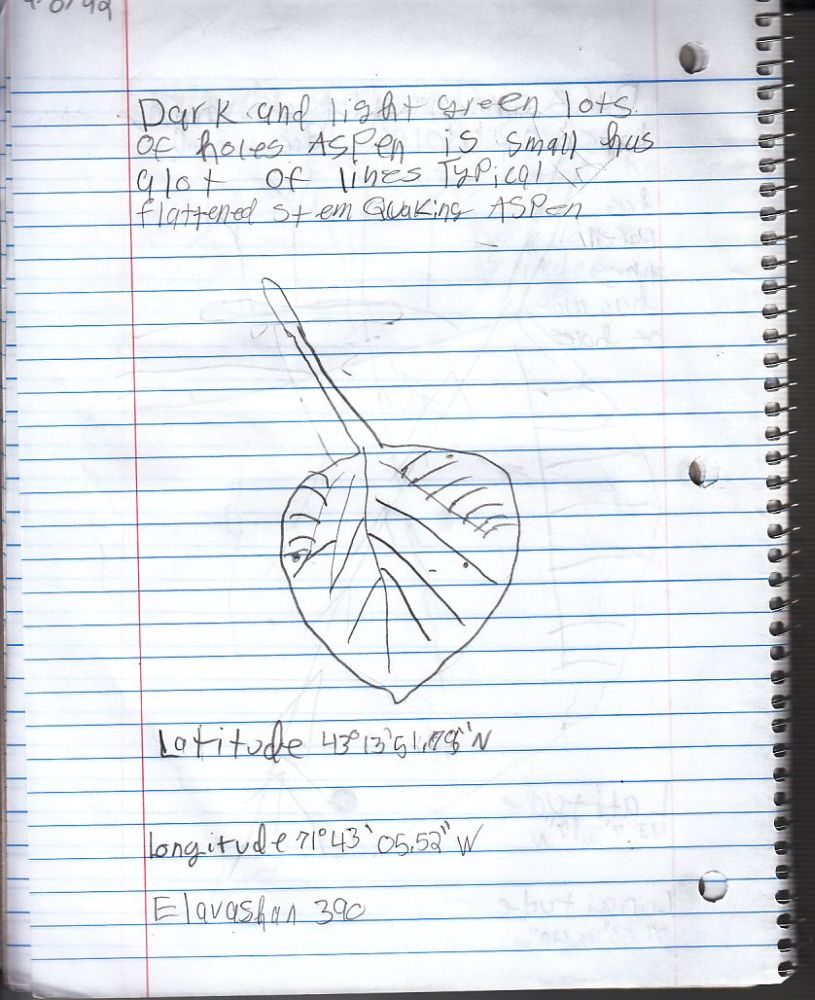 Dark and light green lots
Of holes ASPen is small has
alot Of lines Typical
flattened stem Quaking ASPen
Latitude 43° 13' 51.78" N
longitude 71° 43' 05.52" W
Elavashan 390